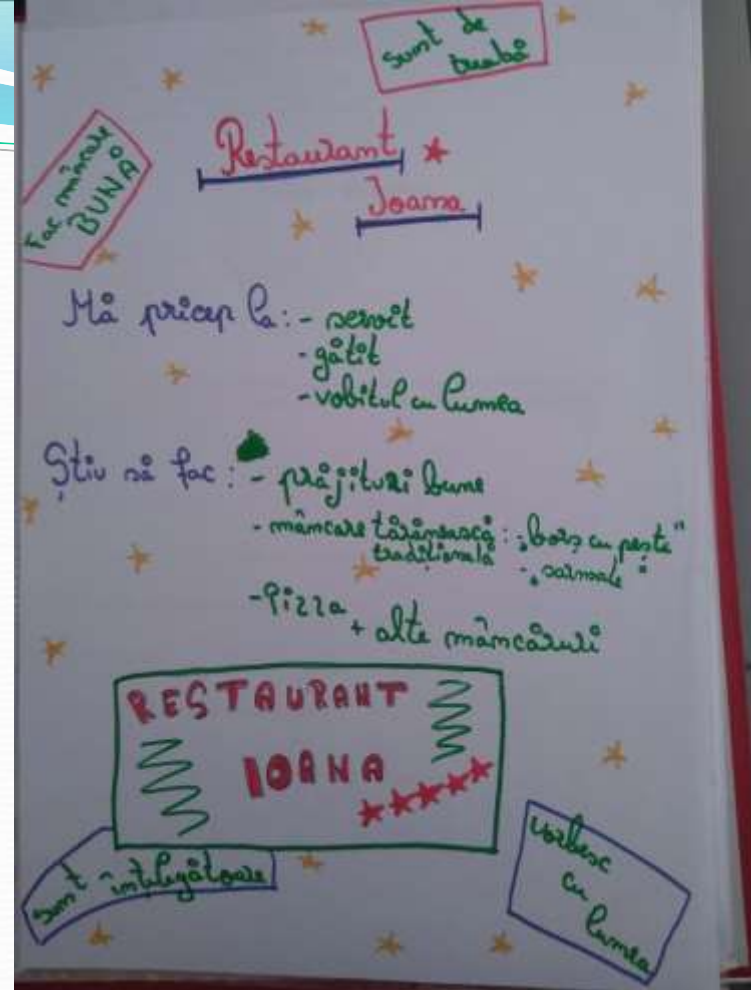 Sunt de
treabă
Fac mâncare
BUNĂ
Restaurant
Ioana
Mă pricep la: - servit
- gătit
- vobitul cu lumea
Știu să fac: - prăjituri bune
- mâncare țărănească : „borș cu pește"
tradițională - „sarmale"
- Pizza
+ alte mâncăruri
RESTAURANT
IOANA
Sunt înțelegătoare
Vorbesc
cu
lumea